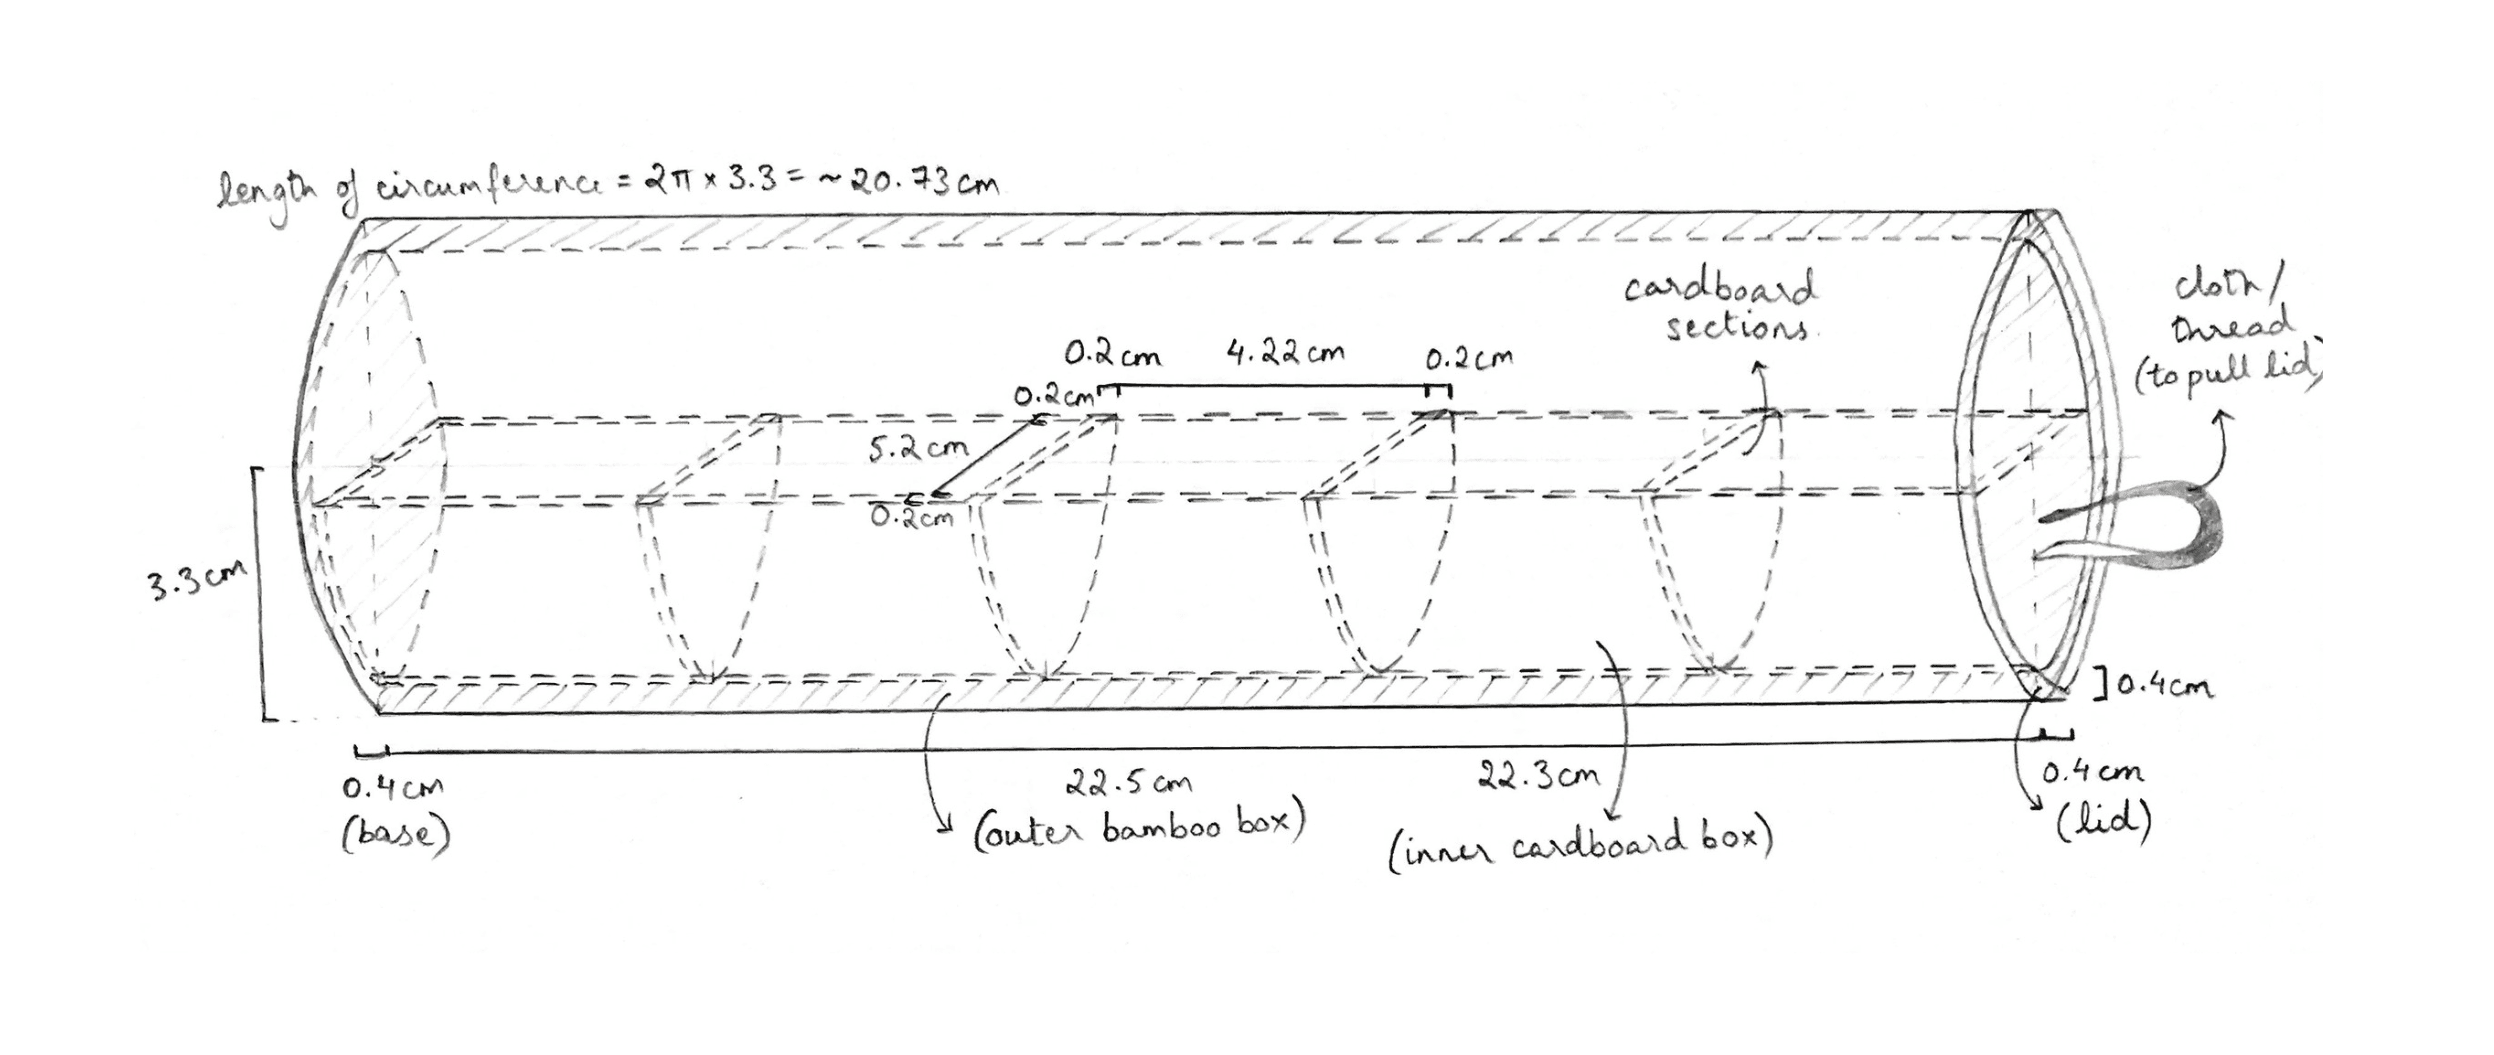 length of circumference = 2π × 3.3 = ~20.73cm
cardboard
sections.
cloth/
thread
(to pull lid)
0.2cm
4.22cm
0.2cm
0.2cm
5.2cm
0.2cm
3.3cm
0.4cm
0.4cm
(base)
22.5cm
(outer bamboo box)
22.3cm
(inner cardboard box)
0.4cm
(lid)